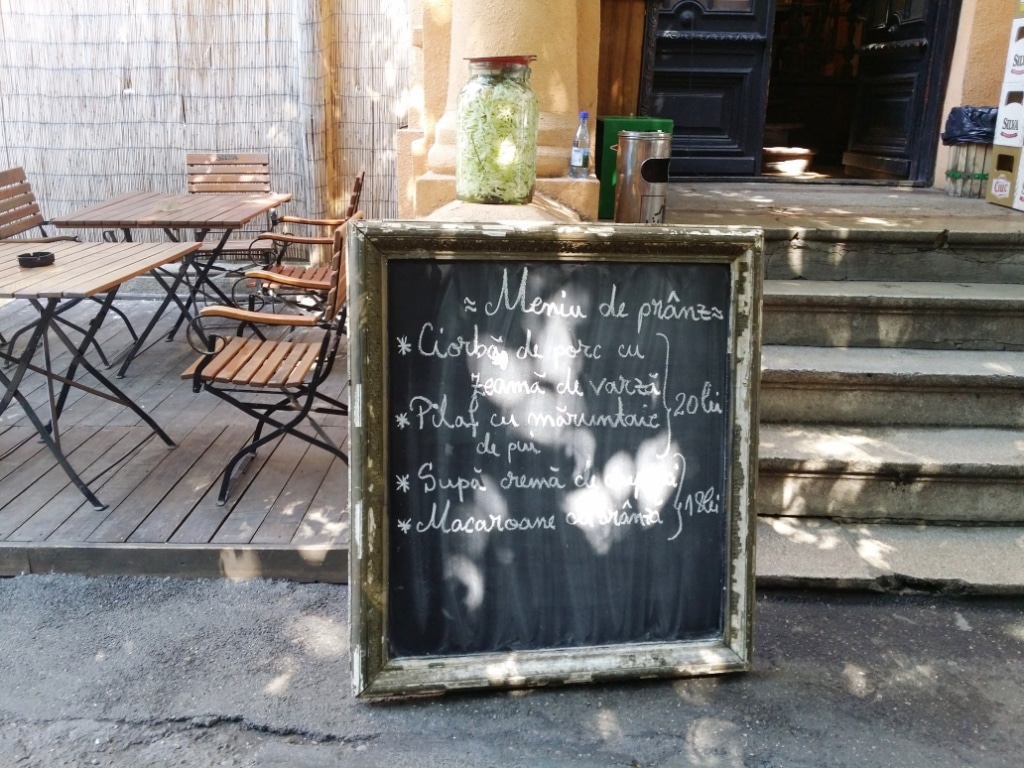 ≈ Meniu de prânz ≈
* Ciorbă de porc cu
zeamă de varză
* Pilaf cu măruntaie
de pui
} 20 lei
* Supă cremă de
* Macaroane cu brânză
} 18 lei
SILVA
Ciuc